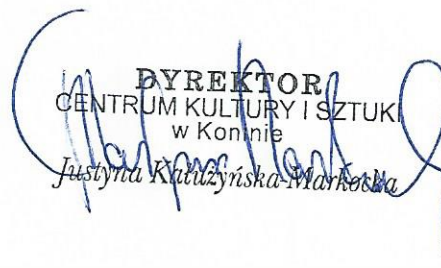 DYREKTOR
CENTRUM KULTURY I SZTUKI
w Koninie
Justyna Kałużyńska-Markocka